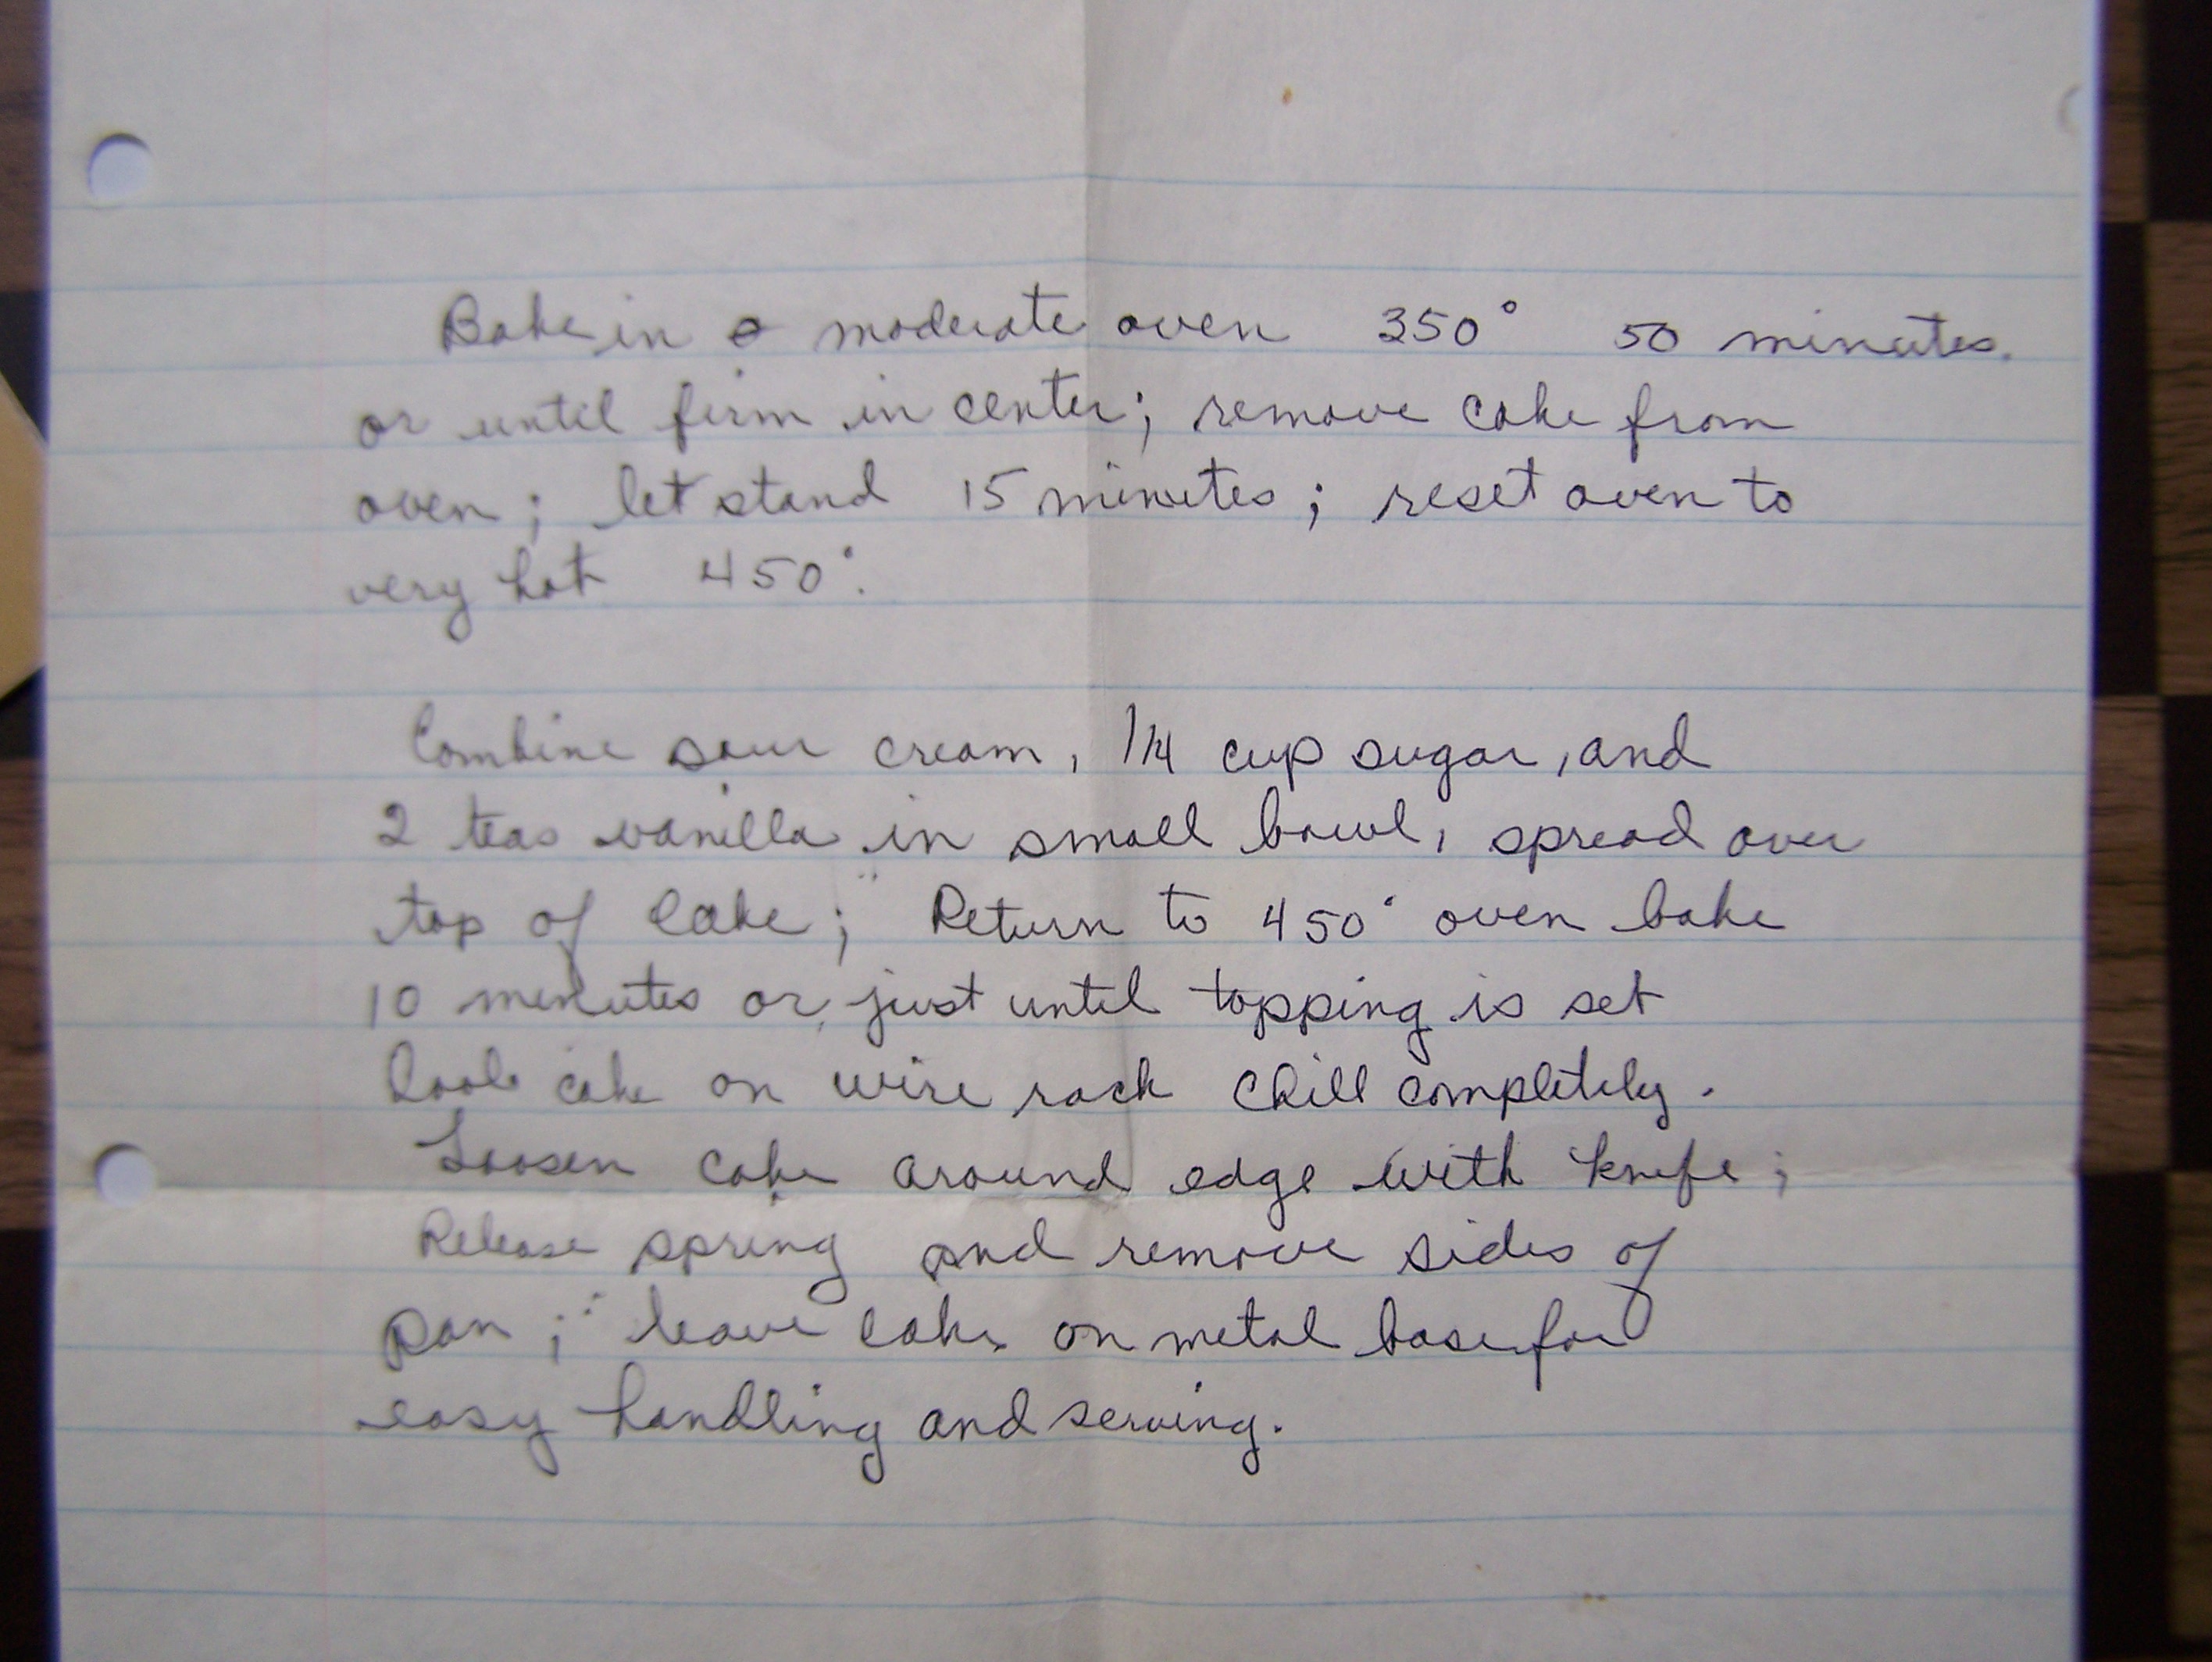 Bake in a moderate oven 350° 50 minutes.
or until firm in center; remove cake from
oven; let stand 15 minutes; reset oven to
very hot 450°.
Combine sour cream, 1/4 cup sugar, and
2 teas vanilla in small bowl, spread over
top of cake; Return to 450° oven bake
10 minutes or, just until topping is set
Cool cake on wire rack chill completely.
Loosen cake around edge with knife;
Release spring and remove sides of
pan; leave cake on metal base for
easy handling and serving.